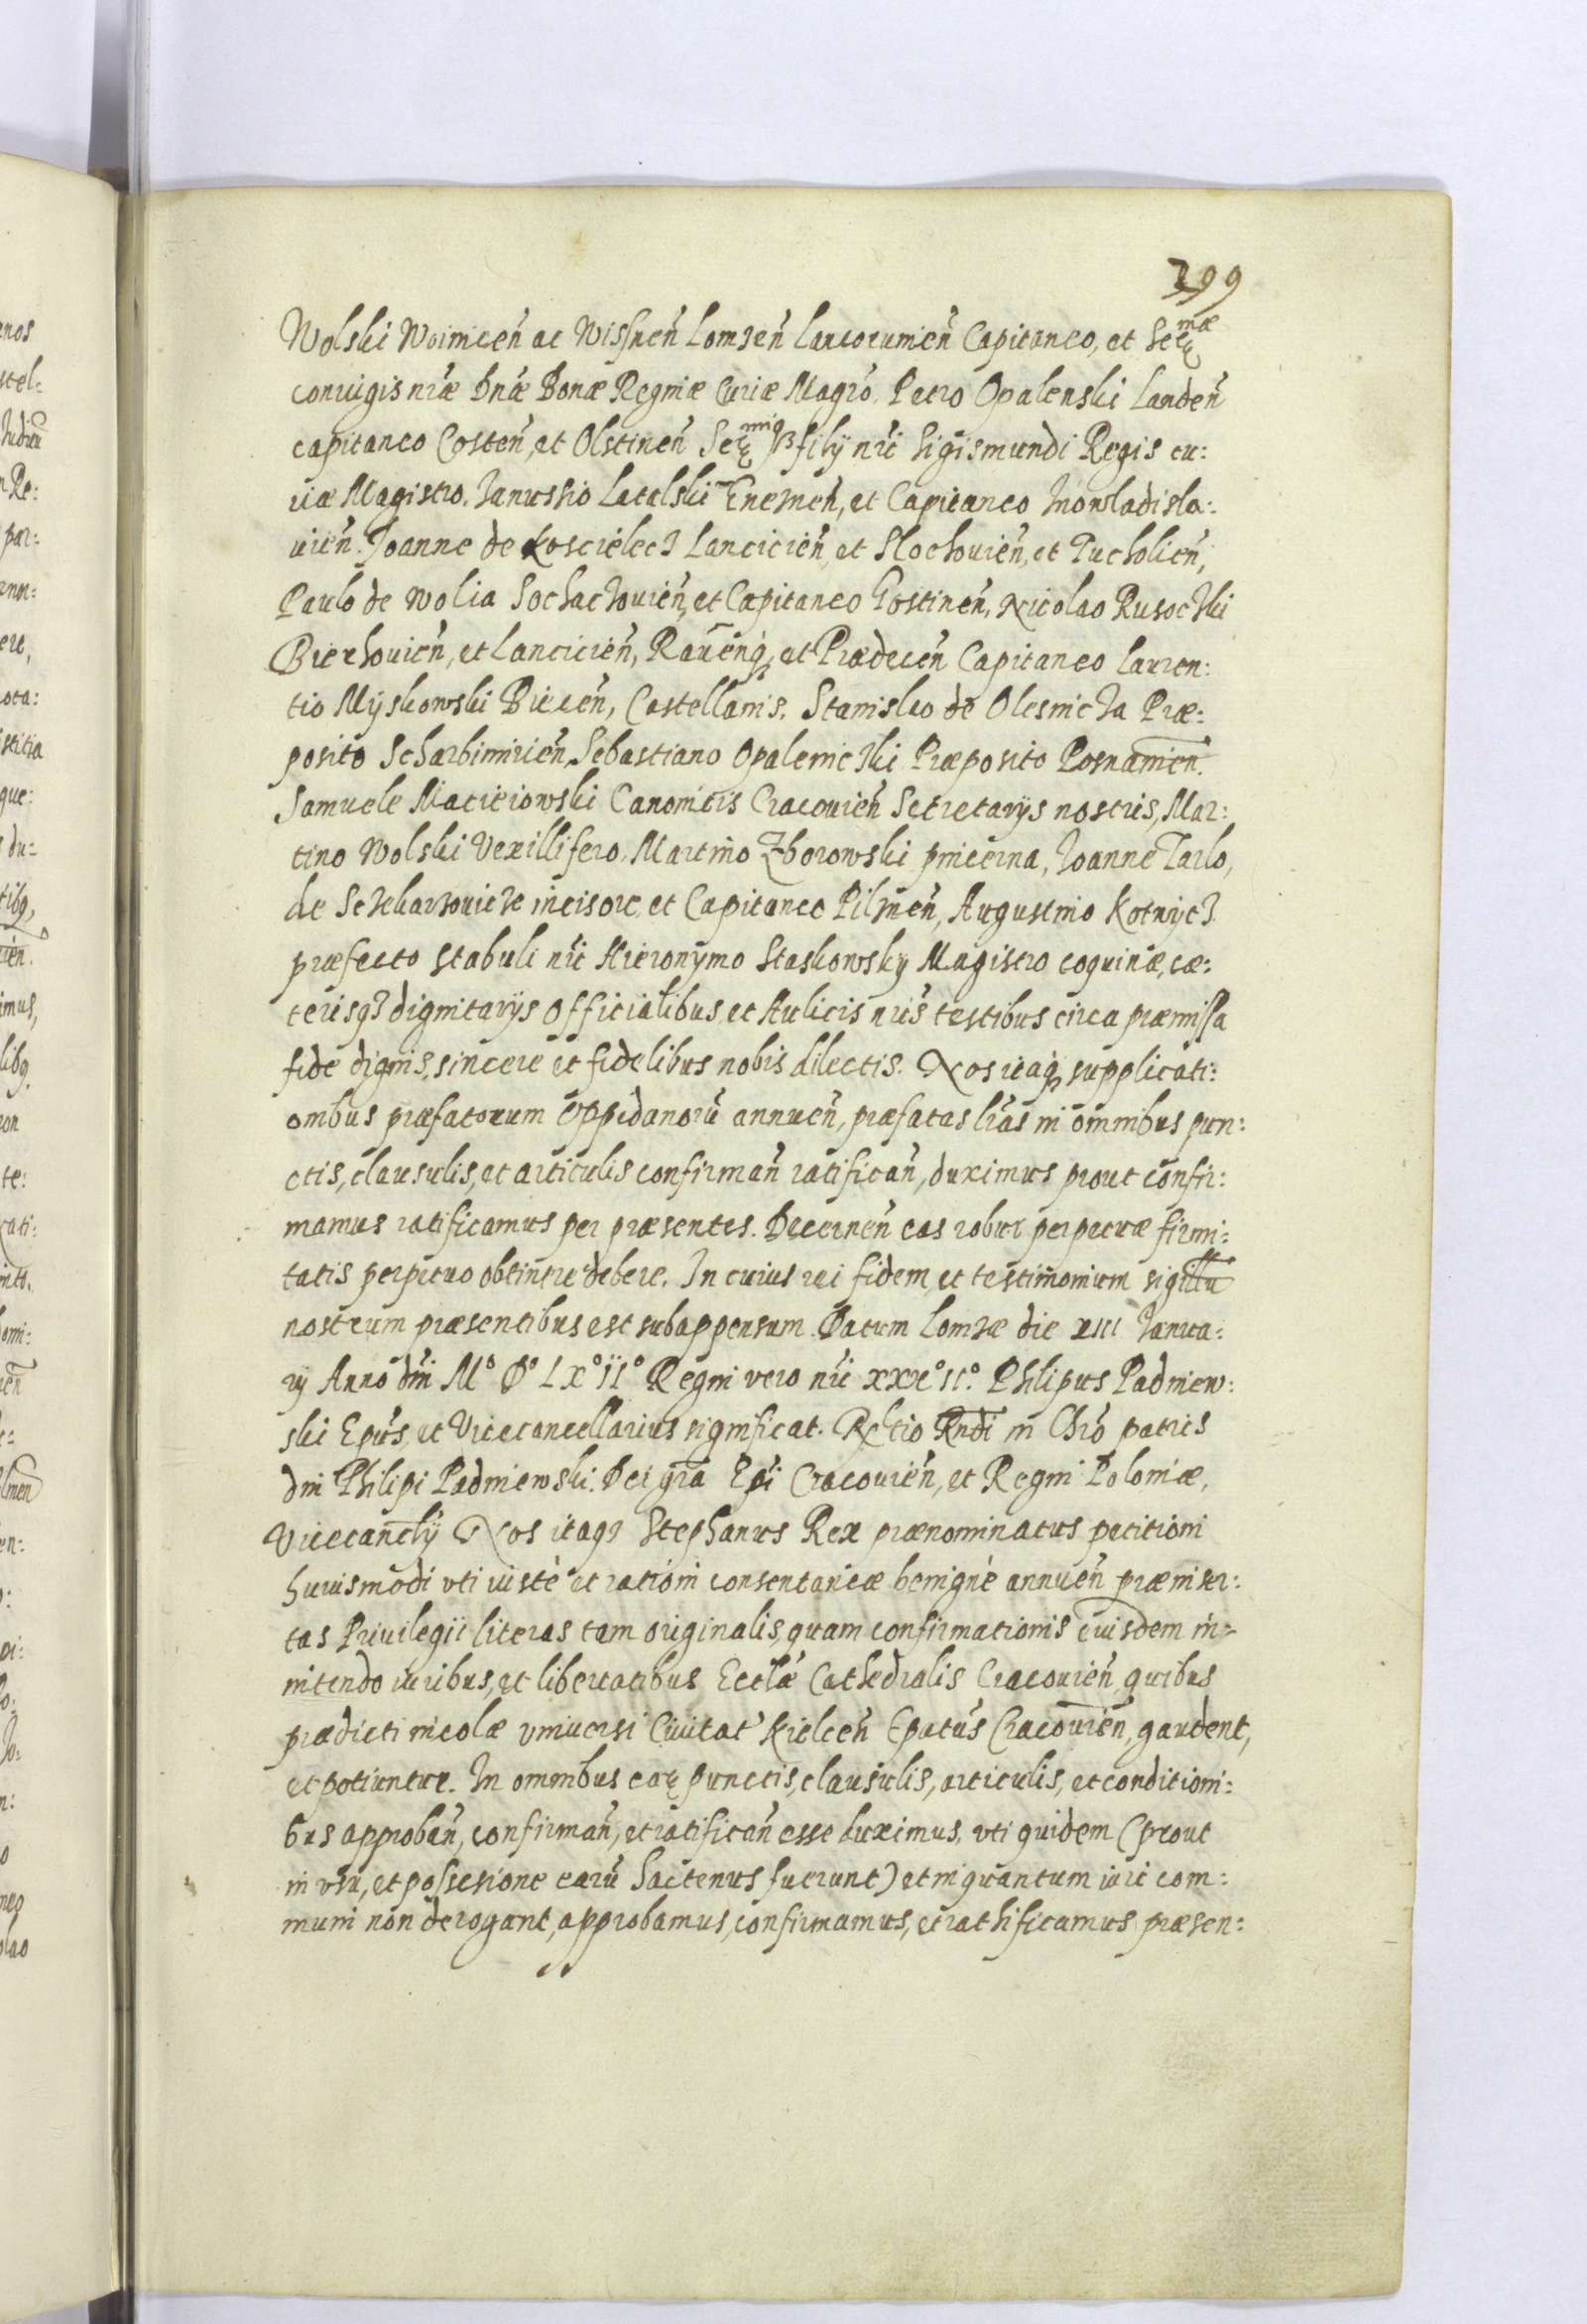 399
Wolski Woinicen̄ ac Wissnen̄ Lomzen̄ Lanckorumien̄ Capitaneo, et Se͞r mæ
coniugis nr̄æ Dn̄æ Bonæ Reginæ Curiæ Magr̄o. Petro Opalenski Landen̄
capitaneo Costen̄, et Olstinen̄ Ser mi filij nr̄i Sigismundi Regis cu:
riæ Magistro. Janussio Latalski Gnesnen̄, et Capitaneo Inowladisla:
uien̄. Joanne de Koscielecz Lancicien̄, et Slochouien̄, et Tucholien̄,
Paulo de Wolia Sochaczouien̄, et Capitaneo Gostinen̄, Nicolao Rusoczki
Biechouien̄, et Lancicien̄, Rauen̄q, et Prædecen̄ Capitaneo Lauren:
tio Myskowski Biecen̄, Castellanis. Stanislao de Olesnicza Præ:
posito Scharbimirien̄, Sebastiano Opaleniczki Præposito Posnanien̄.
Samuele Macieiowski Canonicis Cracouien̄ Secretarijs nostris, Mar:
tino Wolski Vexillifero, Martino Zborowski pincerna, Joanne Tarlo,
de Sczekarzouicze incisore, et Capitaneo Pilznen̄, Augustino Kotwicz
præfecto stabuli nr̄i Hieronymo Staskowsky Magistro coquinæ, cæ:
terisq3 dignitarijs Officialibus et Aulicis nr̄is testibus circa præmissa
fide dignis, sincere et fidelibus nobis dilectis. Nos itaq supplicati:
onibus præfatorum Oppidanorū annuen̄, præfatas lr̄as in omnibus pun:
ctis, clausulis, et articulis confirman̄ ratifican̄, duximus prout confir:
mamus ratificamus per præsentes. Decernen̄ eas robur perpetuæ firmi:
tatis perpetuo obtinere debere. In cuius rei fidem, et testimonium sigillū
nostrum præsentibus est subappensum. Datum Lomzæ die XIII Janua:
rij Anno dn̄i M° D° LX° II° Regni vero nr̄i XXX° II°. Philipus Padniew:
ski Ep̄us, et Vicecancellarius significat. Rl̄tio Rn̄di in Chr̄o patris
dn̄i Philipi Padniewski. Dei gr̄a Ep̄i Cracouien̄, et Regni Poloniæ,
Vicecanc̄lij Nos itaq3 Stephanus Rex prænominatus petitioni
huiusmodi vti iustè et rationi consentaneæ benignè annuen̄ præinser:
tas Privilegii literas tam originalis, quam confirmationis eiusdem in:
nitendo iuribus, et libertatibus Eccl̄æ Cathedralis Cracouien̄ quibus
prædicti incolæ vniuersi Ciuitat Kielcen̄ Ep̄atus Cracouien̄, gaudent,
et potiuntur. In omnibus ear punctis, clausulis, articulis, et conditioni:
bus approban̄, confirman̄, et ratifican̄ esse duximus, vti quidem (prout
in vsu, et possesione earū hactenus fuerunt) et inquantum iuri com:
muni non derogant, approbamus, confirmamus, et rathificamus præsen: